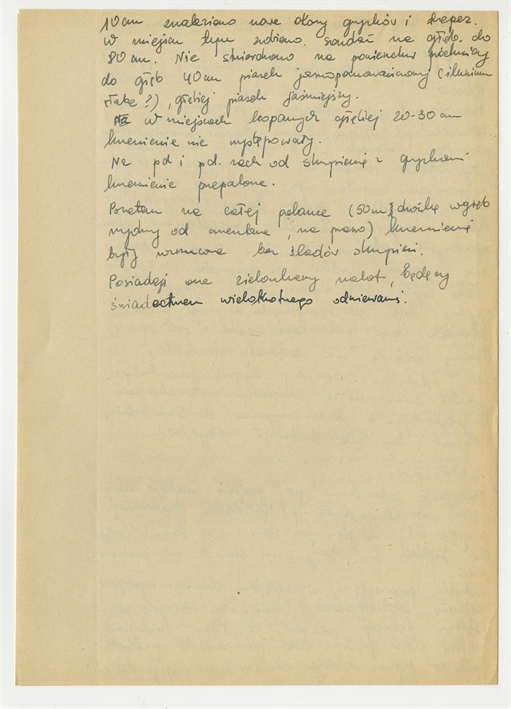 10 cm znaleziono nowe okazy grupków i drapacz.
W miejscu tym zrobiono sondaż na głęb. do
80 cm. Nie stwierdzono na powierzchni
do głęb 40 cm piasek jasnopomarańczowy (iluwium
słabe?), głębiej piasek jaśniejszy.
W miejscach kopanych głębiej 20-30 cm
krzemienie nie występowały.
Na pd i pd. zach od skupienia z
krzemienie przepalone.
Pozatem na całej polance (50 m) w głąb
wydmy od cmentarza, na prawo) krzemienie
były wzrucone bez śladów skupień.
Posiadają one zielonkawy nalot, będący
świadectwem wielokrotnego odnawiania.